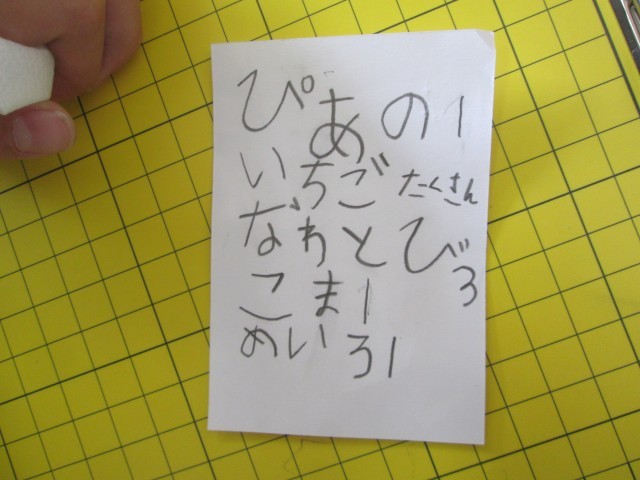 ぴあの1
いちご たくさん
なわとび3
こま1
めいろ1